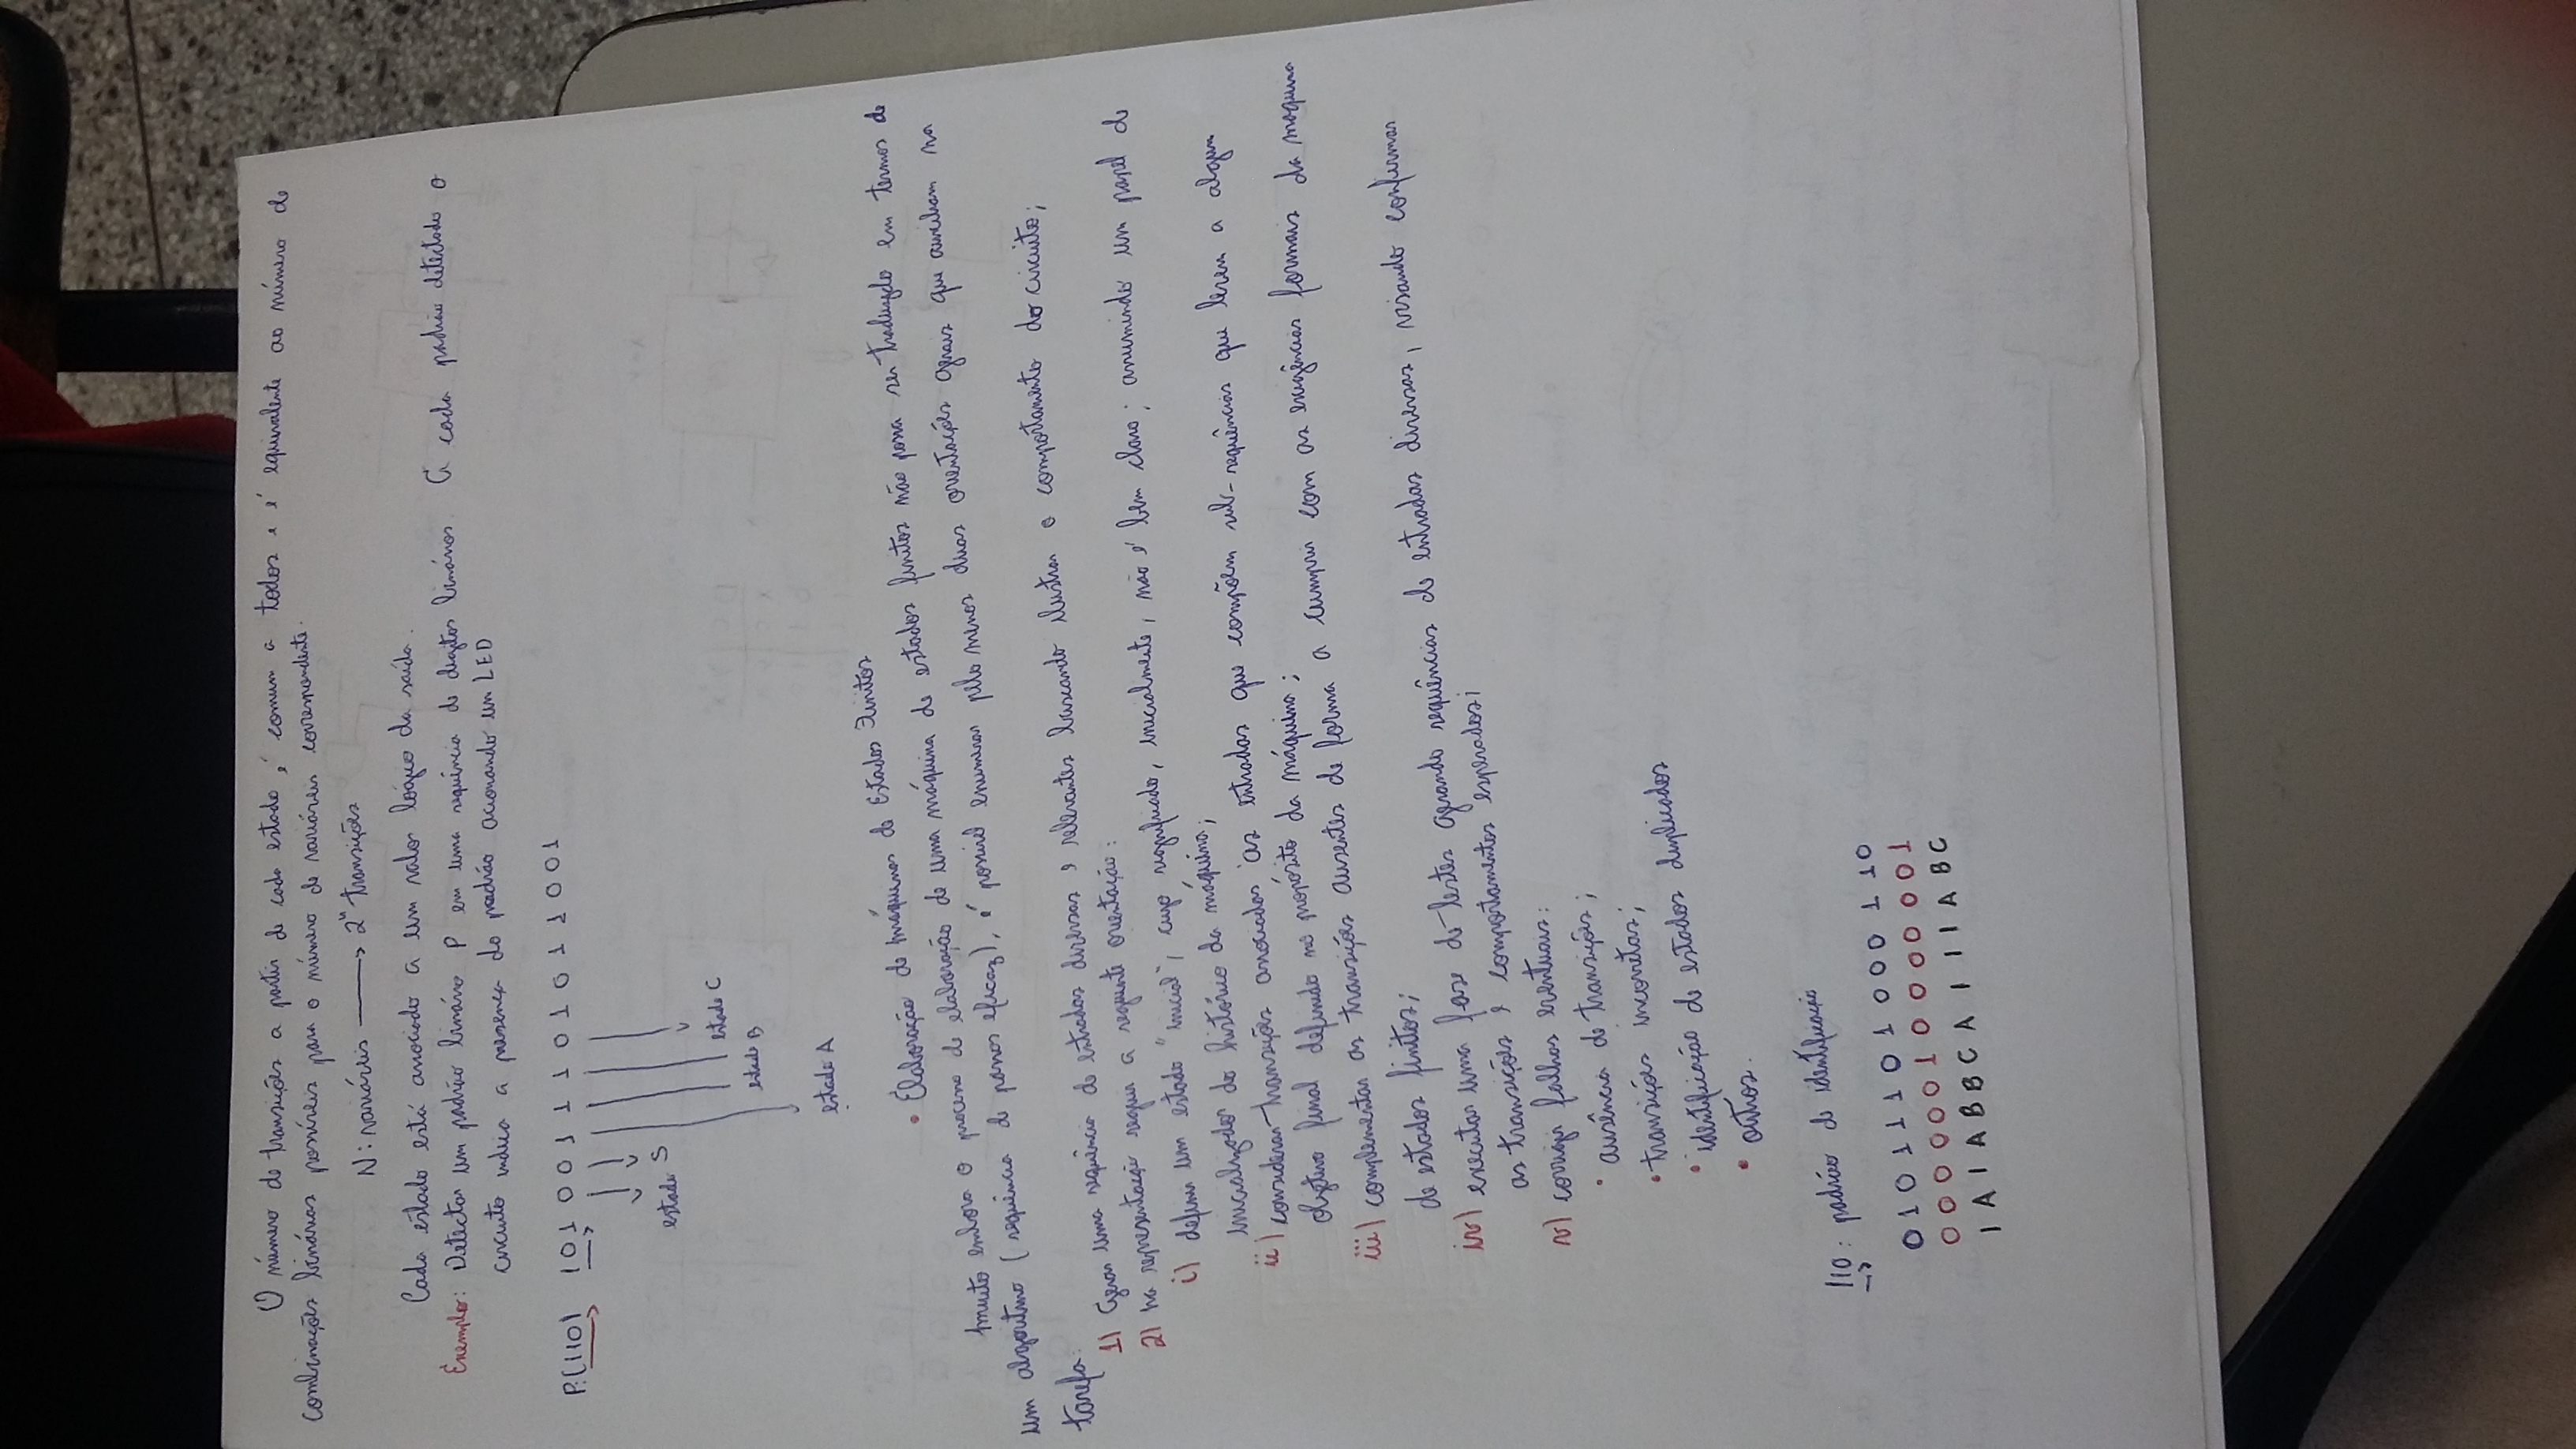 O número de transições a partir de cada estado, é comum a todos e é equivalente ao número de
combinações binárias possíveis para o número de variáveis correspondente.
N: variáveis → 2ᴺ transições
Cada estado está associado a um valor lógico da saída.
Exemplo: Detectar um padrão binário P em uma sequência de dígitos binários. A cada padrão detectado o
circuito indica a presença do padrão acionando um LED
P:(110) 1 0 1 0 0 1 1 1 0 1 0 1 1 0 0 1
estado S
estado C
estado B
estado A
• Elaboração de Máquinas de Estados Finitos
Muito embora o processo de elaboração de uma máquina de estados finitos não possa ser traduzido em termos de
um algoritmo (sequência de passos eficaz), é possível enumerar pelo menos duas orientações gerais que auxiliam na
tarefa:
1) Gerar uma sequência de entradas diversas e relevantes buscando ilustrar o comportamento do circuito;
2) Na representação seguir a seguinte orientação:
i) definir um estado "inicial", cujo significado, inicialmente, não é bem claro; assumindo um papel de
inicializador do histórico da máquina;
ii) considerar transições associadas às entradas que compõem sub-sequências que levem a algum
objetivo final definido no propósito da máquina;
iii) complementar as transições ausentes de forma a cumprir com as exigências formais da maquina
de estados finitos;
iv) executar uma fase de testes gerando sequências de entradas diversas, visando confirmar
as transições e comportamentos esperados;
v) corrigir falhas eventuais:
• ausência de transições;
• transições incorretas;
• identificação de estados duplicados
• outros.
110: padrão de identificação
0 1 0 1 1 1 0 1 0 0 0 1 1 0
0 0 0 0 0 0 1 0 0 0 0 0 0 1
I A I A B B C A I I I A B C